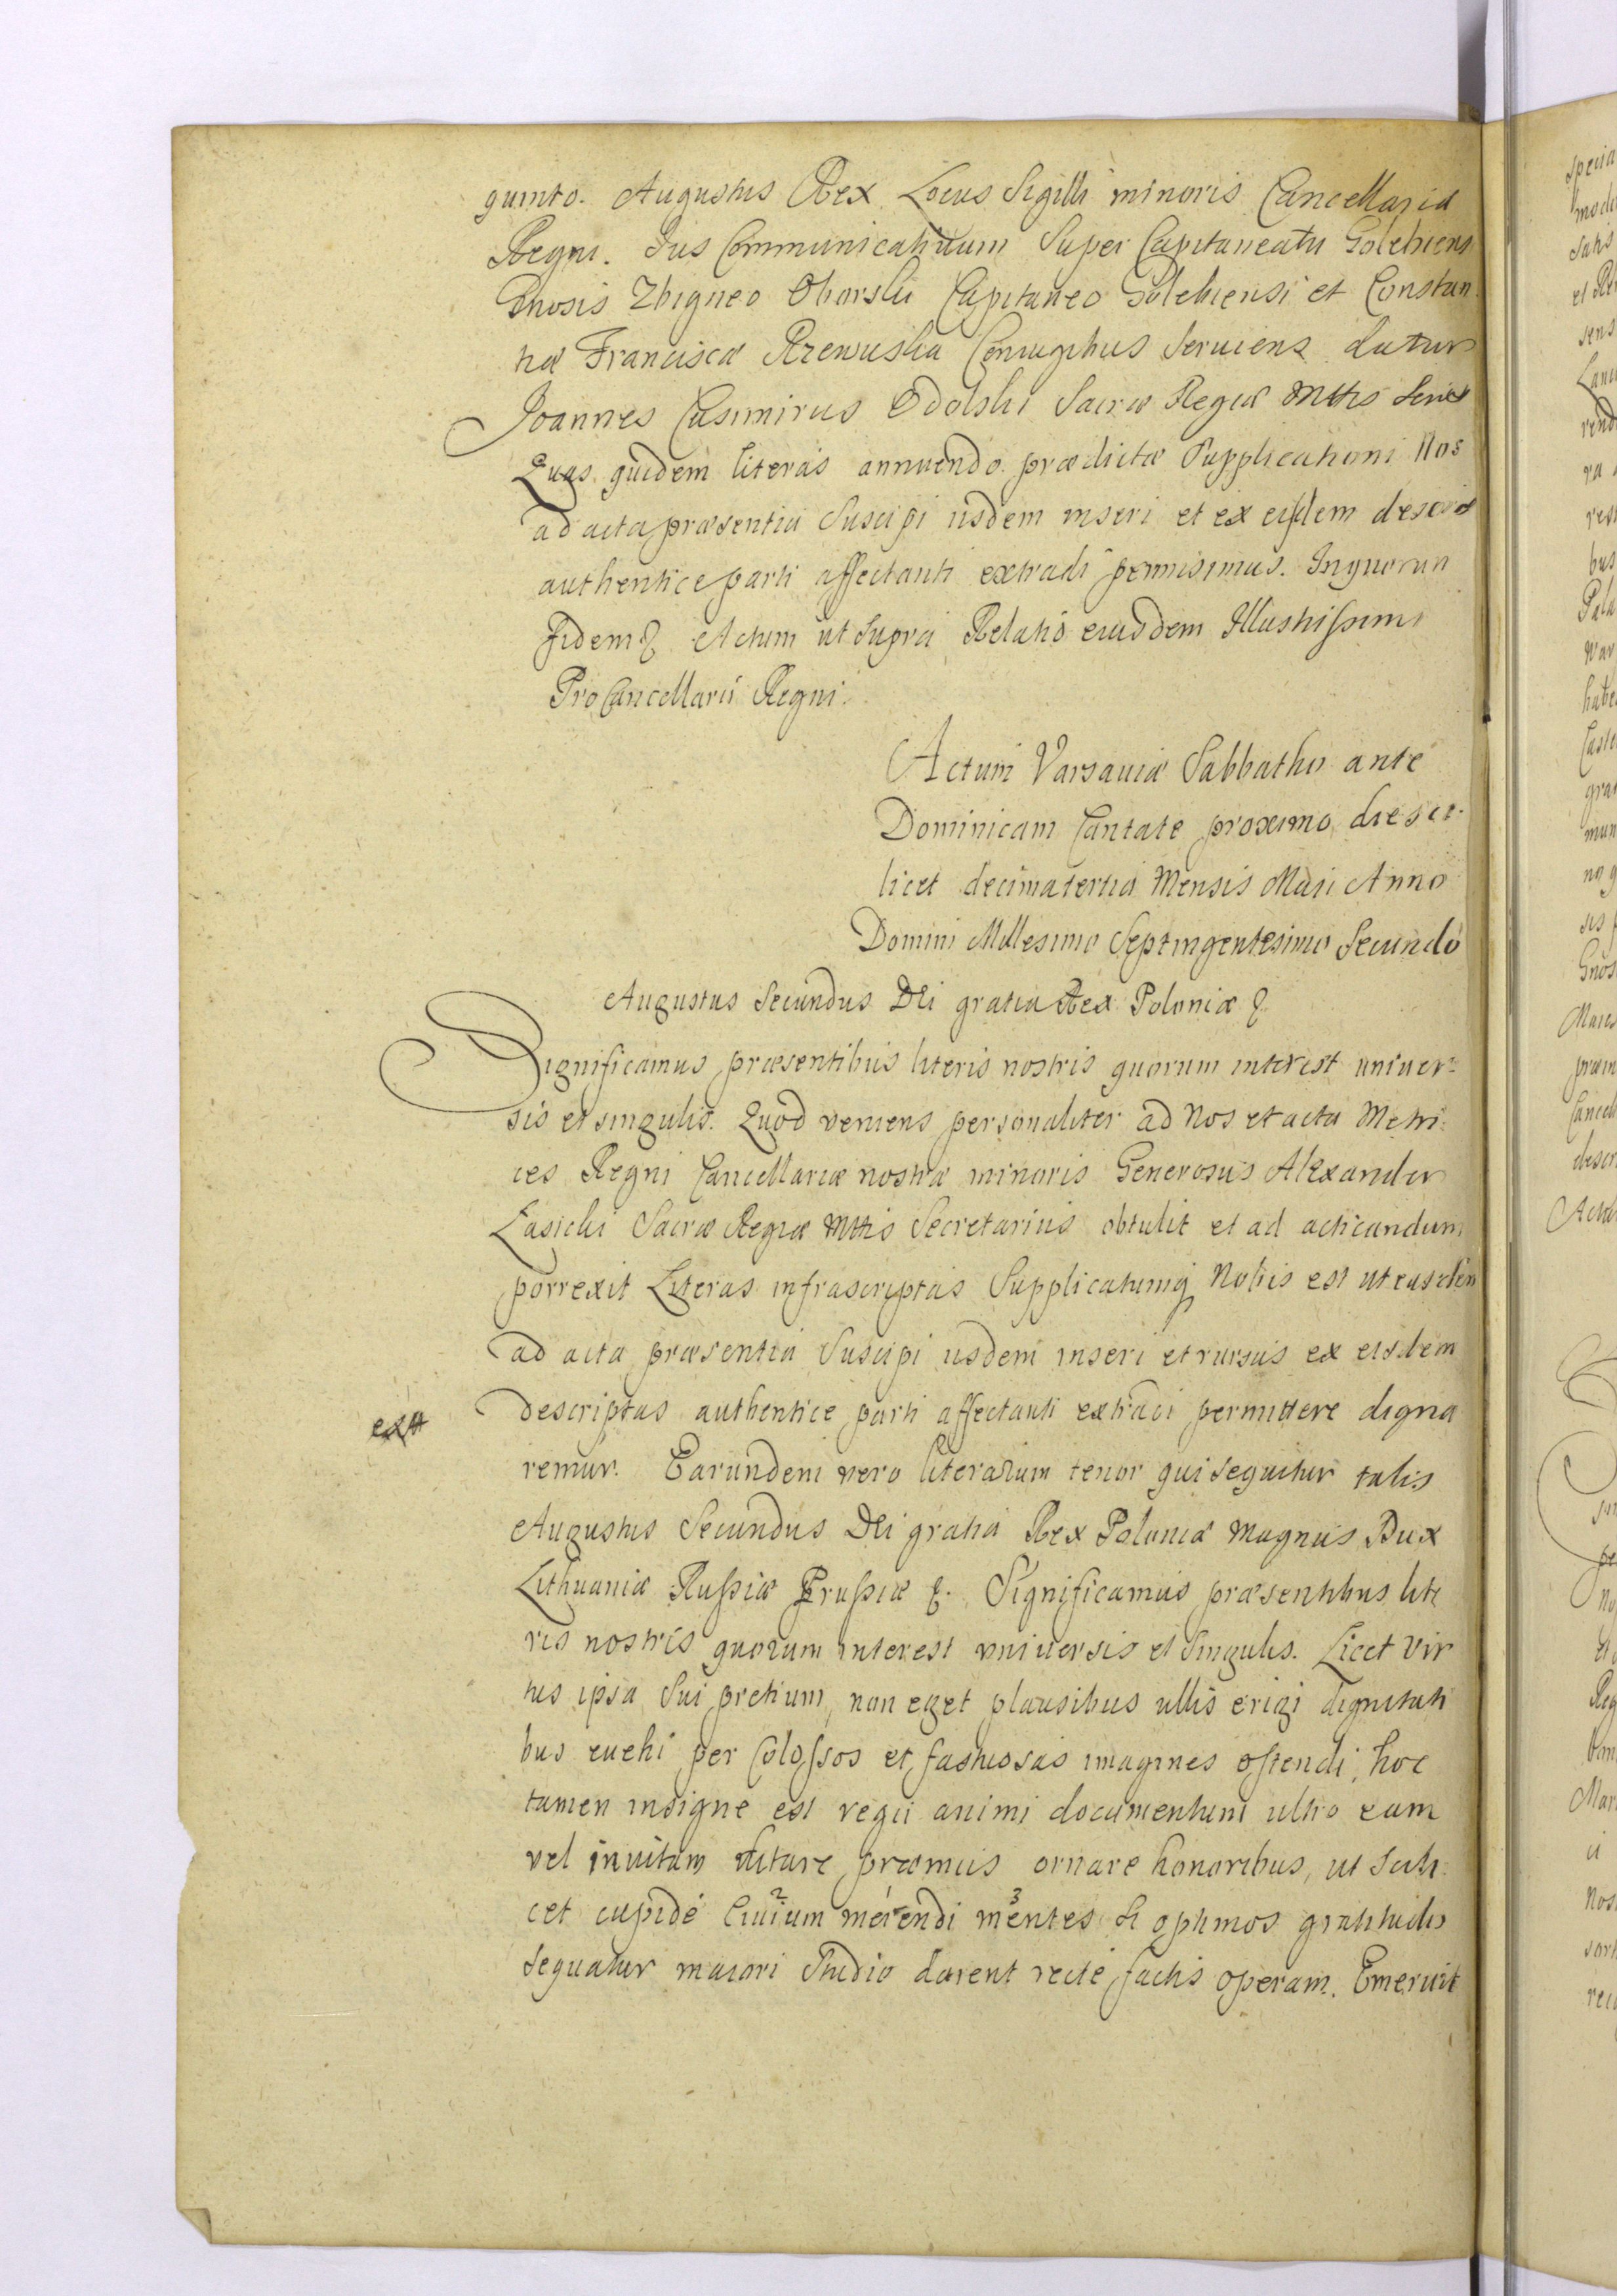 quinto. Augustus Rex Locus Sigilli minoris Cancellariæ
Regni. Ius Communicatiuum Super Capitaneatu Golebiens
Gnosis Zbigneo Oborski Capitaneo Golebiensi et Constan
tiæ Franciscæ Rzewuska Coniugibus Seruiens datur
Joannes Casimirus Odolski Sacræ Regiæ Mttis
Quas quidem literas annuendo prædictæ Supplicationi Nos
ad acta præsentia Suscipi iisdem inseri et ex eisdem descrip
authentice parti affectanti extradi permisimus. In quorum
fidem & Actum ut Supra Relatio eiusdem Illustrissimi
ProCancellarii Regni.
Actum Varsauiæ Sabbatho ante
Dominicam Cantate proximo die sci-
licet decima tertia Mensis Maii Anno
Domini Millesimo Septingentesimo Secundo
Augustus Secundus Dei gratia Rex Poloniæ &
Significamus præsentibus literis nostris quorum interest uniuer-
sis et singulis. Quod veniens personaliter ad Nos et acta Metri-
ces Regni Cancellariæ nostræ minoris Generosus Alexander
Lasicki Sacræ Regiæ Mttis Secretarius obtulit et ad acticandum
porrexit Literas infrascriptas Supplicatumq Nobis est ut easdem
ad acta præsentia Suscipi iisdem inseri et rursus ex eisdem
descriptas authentice parti affectanti extradi permittere digna
remur. Earundem vero literarum tenor qui sequitur talis
Augustus Secundus Dei gratia Rex Poloniæ Magnus Dux
Lithuaniæ Russiæ Prussiæ &. Significamus præsentibus lite
ris nostris quorum interest vniuersis et Singulis. Licet Vir
tus ipsa Sui pretium, non eget plausibus ullis erigi dignitati
bus euehi per Colossos et fastuosas imagines ostendi, hoc
tamen insigne est regii animi documentum ultro eam
vel inuitam ditare præmiis ornare honoribus, ut Scili-
cet cupidé Ciuium merendi mentes Si optimos gratitudo
sequatur maiori Studio darent recté factis operam. Emeruit